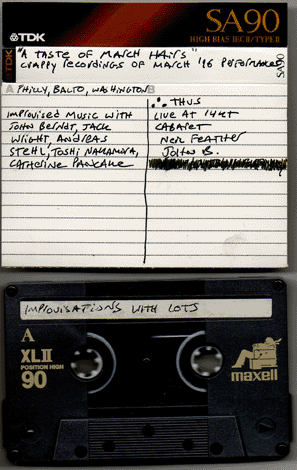 TDK
SA90
HIGH BIAS IECII/TYPEII
TDK
"A TASTE OF MARCH HAIRS"
CRAPPY RECORDINGS OF MARCH '96 PERFORMANCES
A PHILLY, BALTO, WASHINGTON B
IMPROVISED MUSIC WITH
JOHN BERNDT, JACK
WRIGHT, ANDREAS
STEHL, TOSHI NAKAMURA,
CATHERINE PANCAKE
∴ THUS
LIVE AT 14KT
CABARET
NEIL FEATHER
JOHN B.
IMPROVISATIONS WITH LOTS
A
XLII
POSITION HIGH
90
maxell